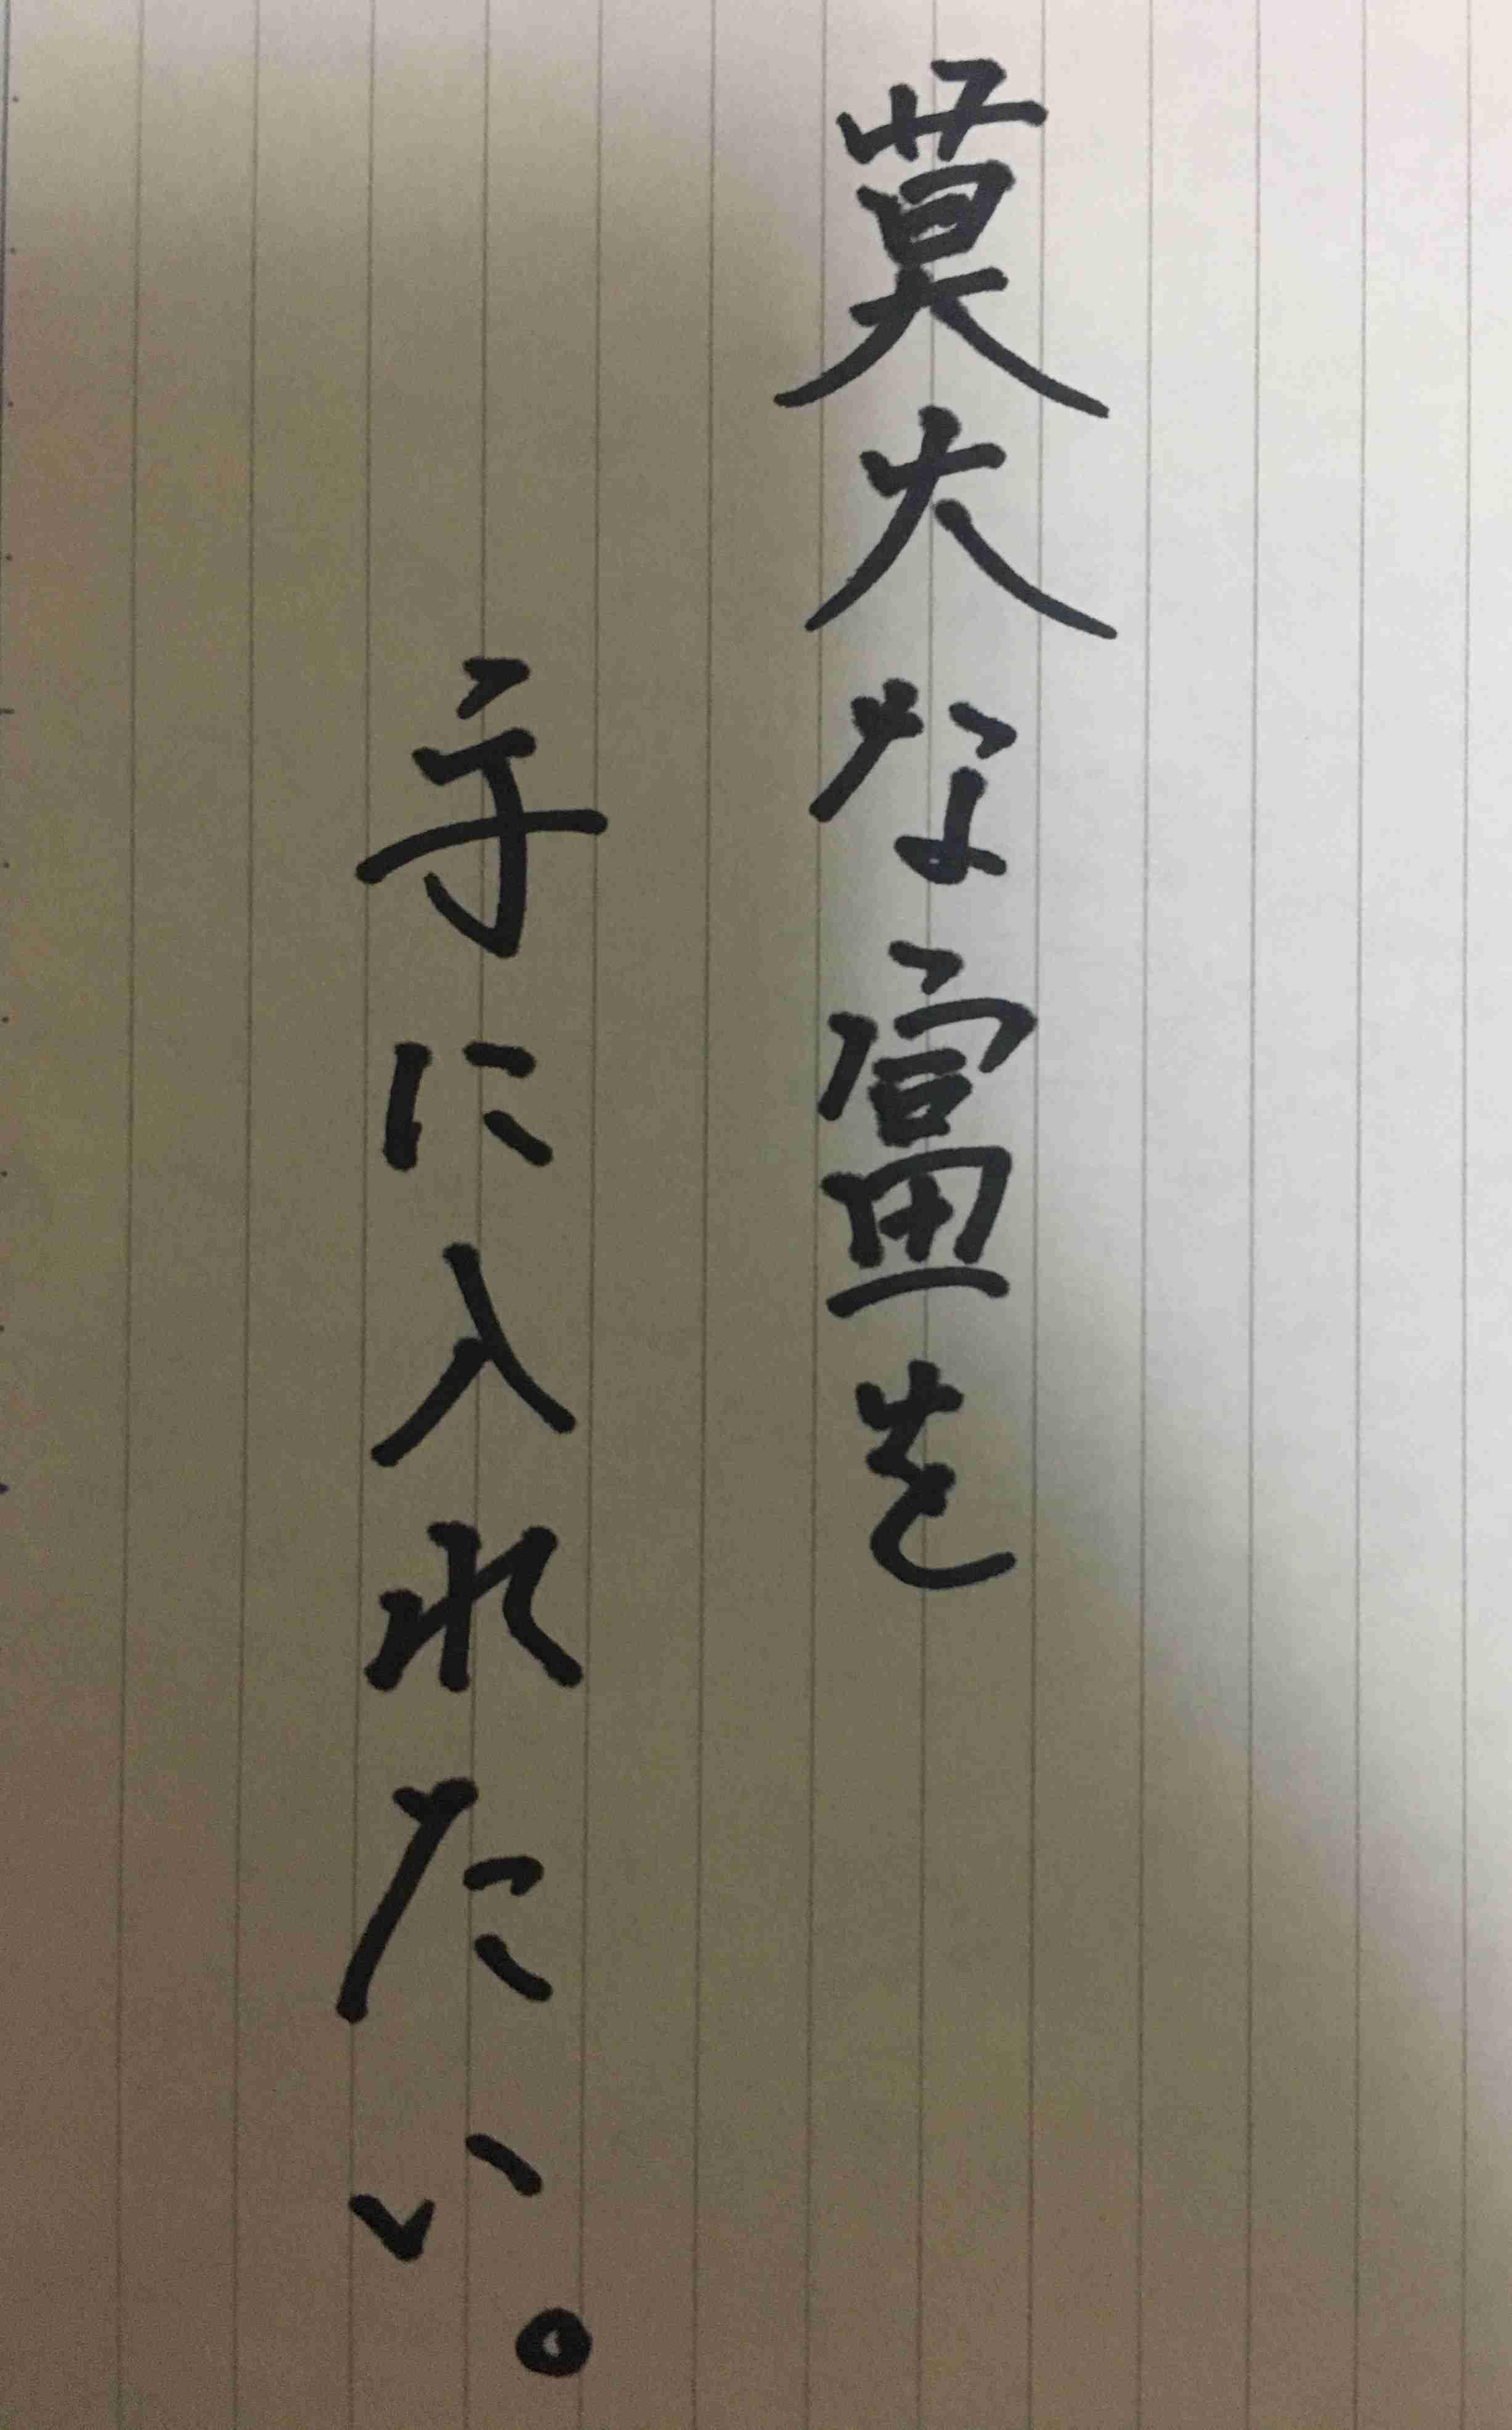 莫大な富を
手に入れたい。